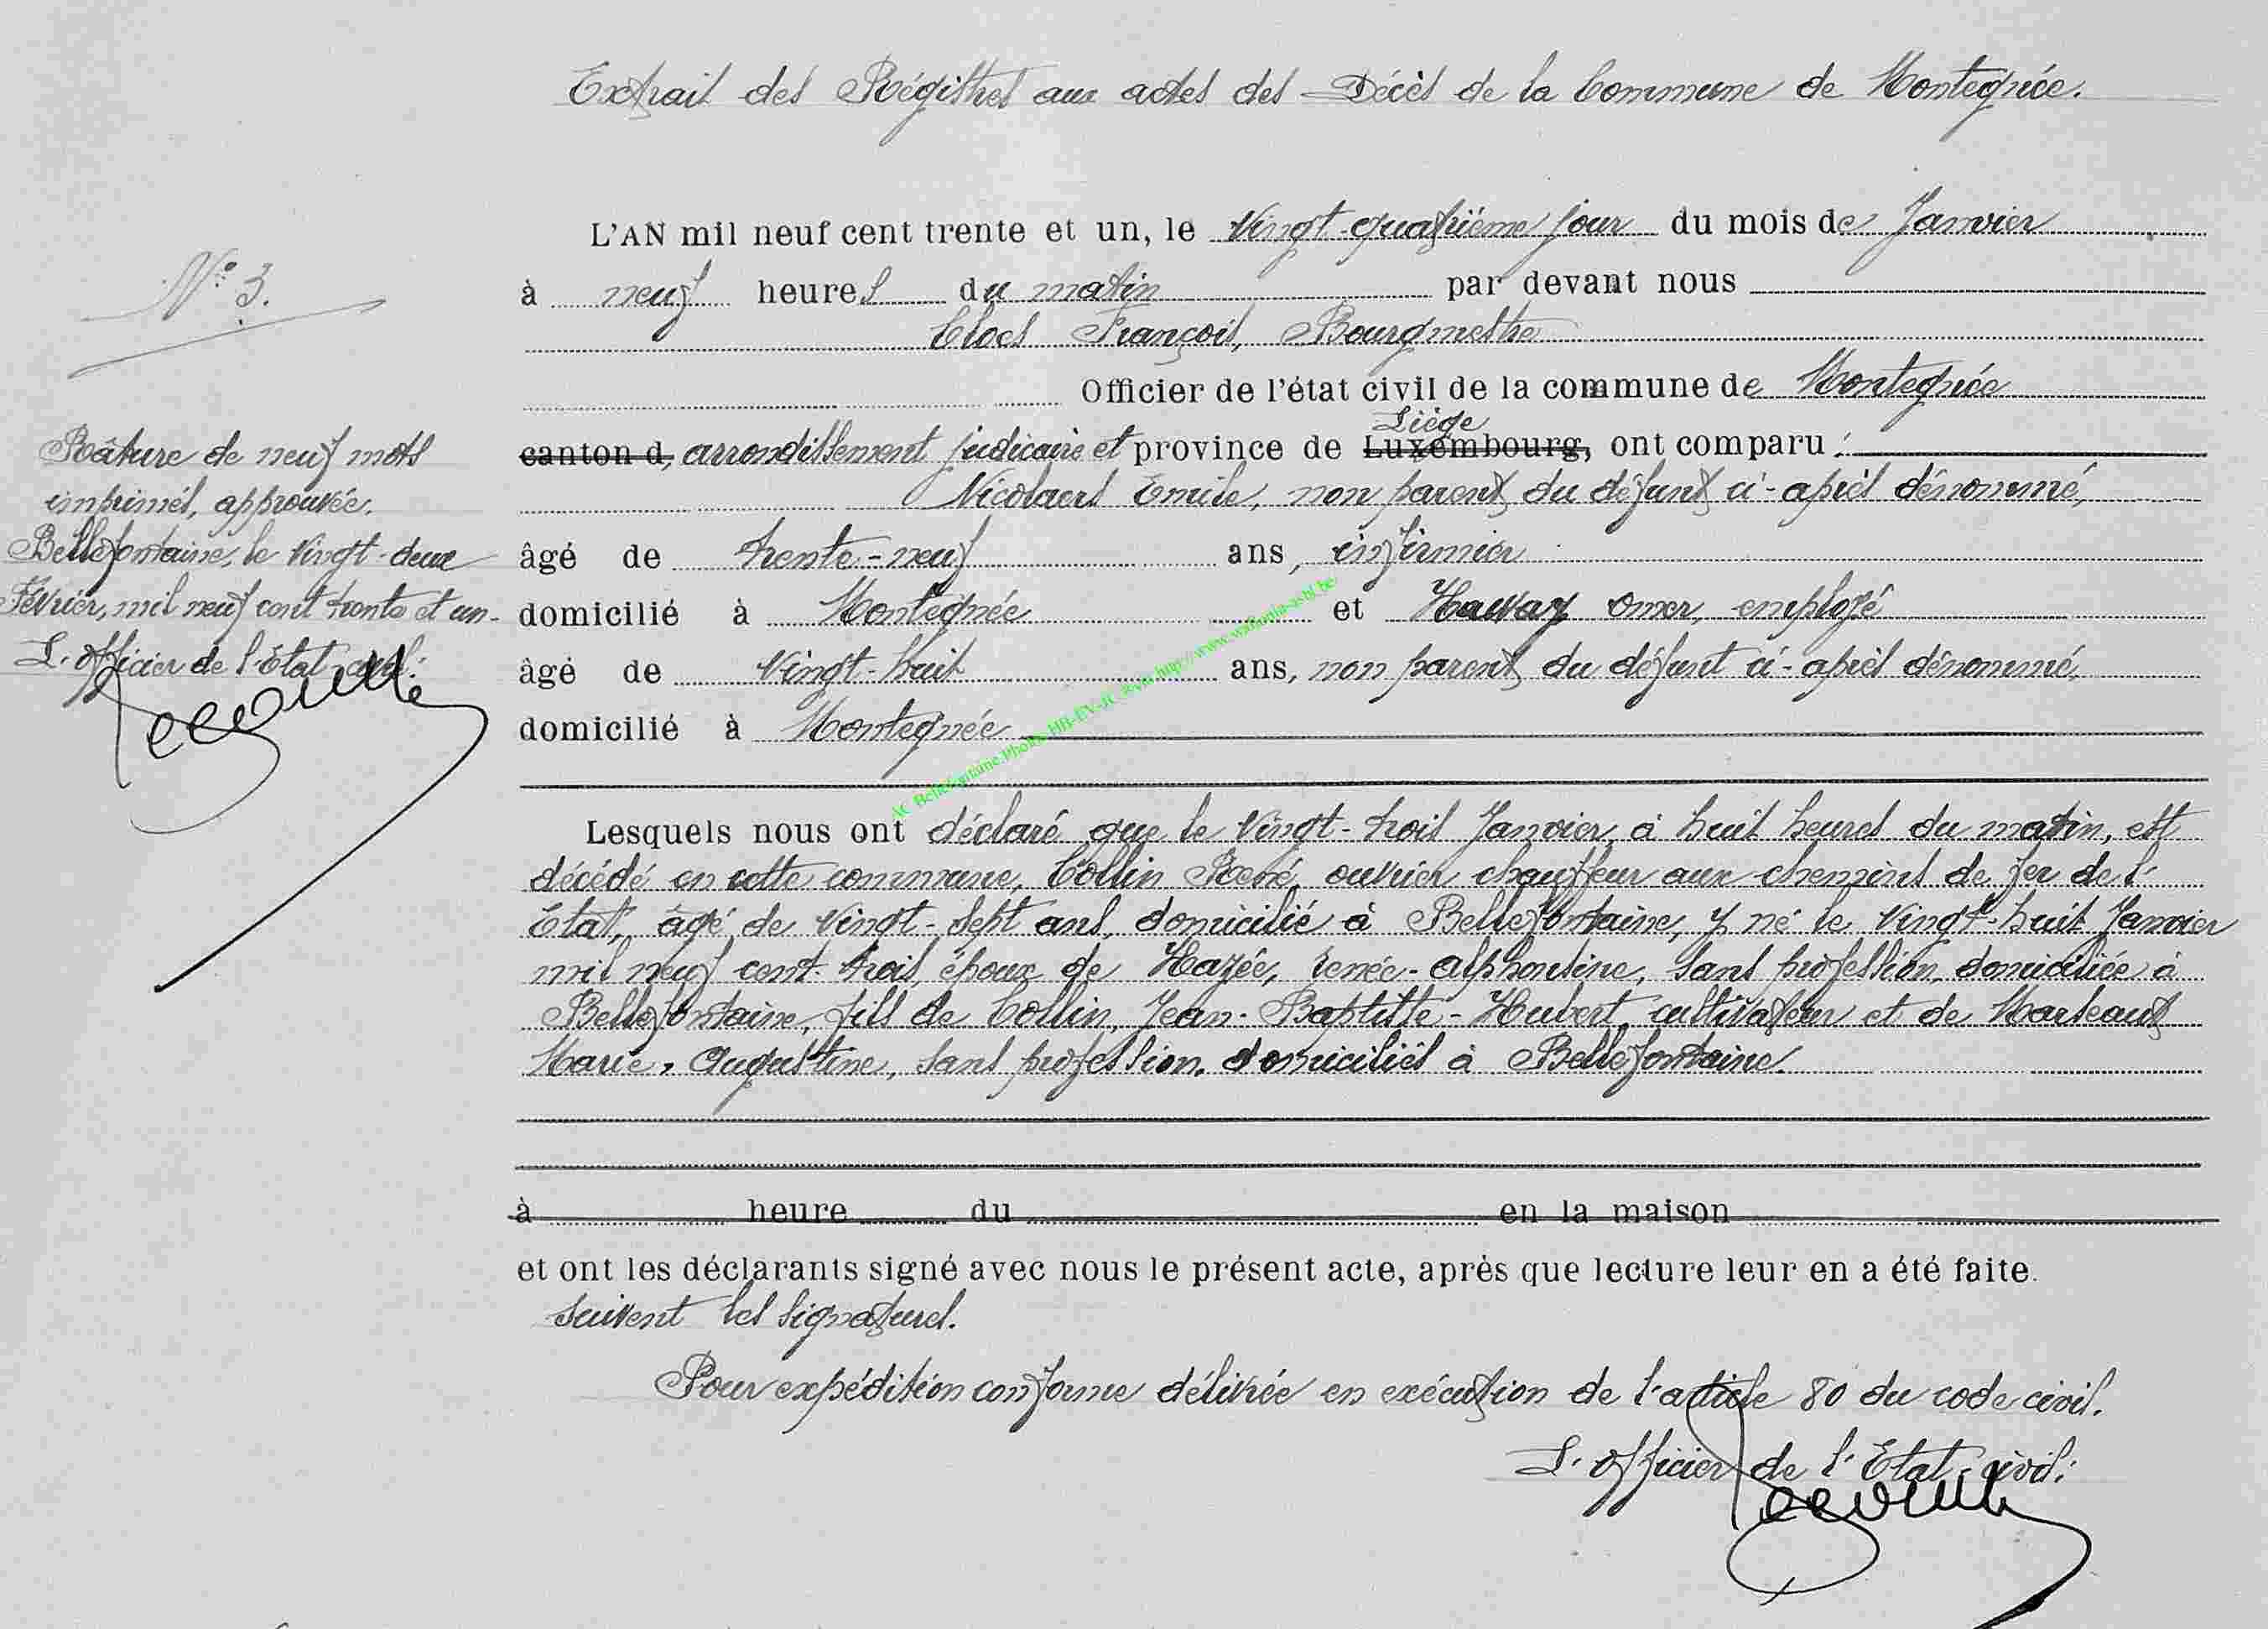 Extrait des Régistres aux actes des Décès de la Commune de Montegnée.
L'AN mil neuf cent trente et un, le Vingt-quatrième jour du mois de Janvier
N° 3.
à neuf heures du matin par devant nous
Cloes François, Bourgmestre
Officier de l'état civil de la commune de Montegnée
Liège
canton d, arrondissement judicaire et province de Luxembourg, ont comparu :
Nicolaers Emile, non parent du défunt ci-après dénommé,
âgé de trente-neuf ans, infirmier
domicilié à Montegnée et Haway Omer, employé
âgé de Vingt-huit ans, non parent du défunt ci-après dénommé,
domicilié à Montegnée
Râture de neuf mots
imprimés, approuvée.
Bellefontaine, le Vingt-deux
Février, mil neuf cent trente et un-
L'officier de l'Etat-civil:
AC Bellefontaine.Photos HB-EV-JC http://www.wallonia-asbl.be
Lesquels nous ont déclaré que le Vingt-trois Janvier, à huit heures du matin, est
décédé en cette commune, Collin René, ouvrier chauffeur aux chemins de fer de l'
Etat, âgé de Vingt-sept ans, domicilié à Bellefontaine, y né le Vingt-huit Janvier
mil neuf cent trois, époux de Hazée, renée-alphonsine, sans profession, domiciliée à
Bellefontaine, fils de Collin, Jean-Baptiste-Hubert, cultivateur et de Marteaux
Marie, Augustine, sans profession, domiciliés à Bellefontaine.
à heure du en la maison
et ont les déclarants signé avec nous le présent acte, après que lecture leur en a été faite.
suivent les signatures.
Pour expédition conforme délivrée en exécution de l'article 80 du code civil.
L'officier de l'Etat-civil: